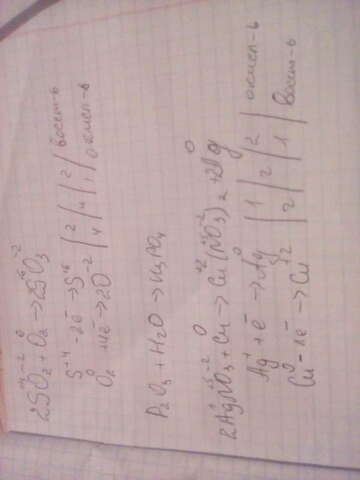 2SO₂ + O₂ → 2SO₃
S⁺⁴ - 2e⁻ → S⁺⁶ | 2 | 4 | 2 | восст-ь
O₂ + 4e⁻ → 2O⁻² | 4 | 4 | 1 | окисл-ь
P₂O₃ + H₂O → H₃PO₄
2AgNO₃ + Cu → Cu(NO₃)₂ + 2Ag
Ag⁺ + e⁻ → Ag⁰ | 1 | 2 | 2 | окисл-ь
Cu⁰ → Cu⁺² | 2 | 1 | восст-ь